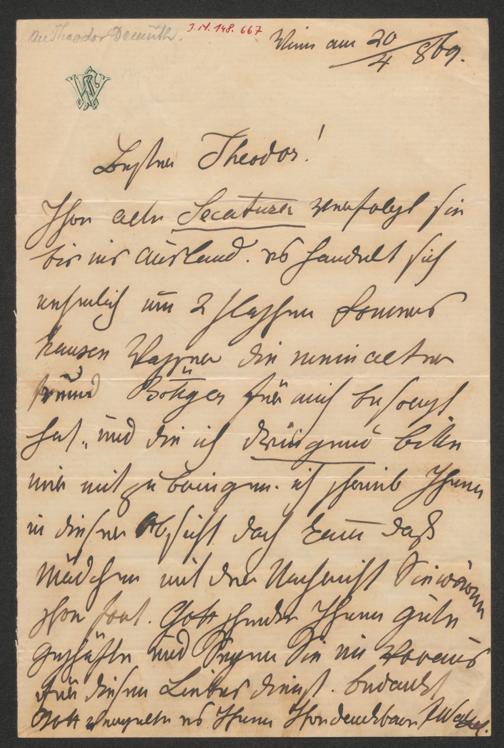 An Theodor Demuth.
J.N. 148.667
Wien am 20/4 869.
Bester Theodor!
Ihre alte Secatura verfolgt sie
bis ins Ausland. es handelt sich
nehmlich um 2 Flaschen Sommers
hausen die mein alter
Freund Böttger für mich besorgt
hat, und die ich dringend bitte
mir mitzubringen. ich schrieb Ihnen
in dieser Absicht doch kam das
Mädchen mit der Nachricht Sie wären
schon fort. Gott sende Ihnen gute
Geschäfte und Segne Sie im Voraus
für diesen Liebes dienst. bedankt
Gott vergelte es Ihnen Ihr dankbarer